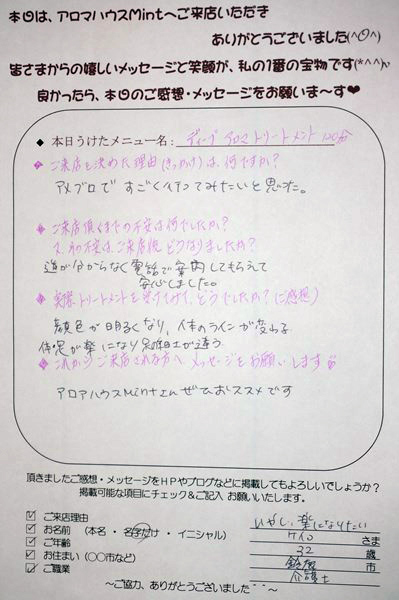 本日は、アロマハウスMintへご来店いただき
ありがとうございました(^O^)
皆さまからの嬉しいメッセージと笑顔が、私の1番の宝物です(*^^*)
良かったら、本日のご感想・メッセージをお願いま～す❤
◆ 本日うけたメニュー名： ディープアロマトリートメント120分
◆ ご来店を決めた理由(きっかけ)は、何ですか？
アメブロですごく行ってみたいと思った。
◆ ご来店頂くまでの不安は何でしたか？
又、その不安は、ご来店後どうなりましたか？
道が分からなく電話で案内してもらえて
安心しました。
◆ 実際、トリートメントを受けてみて、どうでしたか？(ご感想)
顔色が明るくなり、体のラインが変わる
体が楽になり足が違う
◆ これからご来店される方へ、メッセージをお願いします
アロアハウスMintさんぜひおススメです
頂きましたご感想・メッセージをHPやブログなどに掲載してもよろしいでしょうか？
掲載可能な項目にチェック＆ご記入 お願いいたします。
☑ ご来店理由 いやし、楽になりたい
☑ お名前 （本名・名字だけ・イニシャル） ケイコ さま
☑ ご年齢 32 歳
☑ お住まい（〇〇市など） 鈴鹿 市
☑ ご職業 介護士
～ご協力、ありがとうございました～